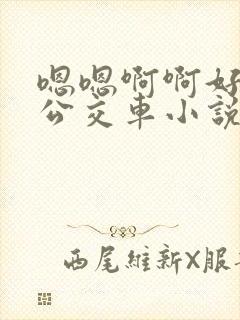 嗯嗯啊啊好
公交車小說
西尾維新X服